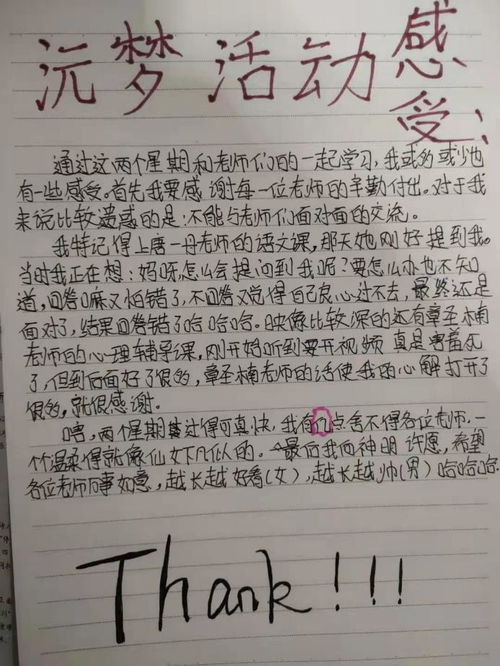 沅梦活动感受:
通过这两个星期和老师们的一起学习,我或多或少也
有一些感受。首先我要感谢每一位老师的辛勤付出。对于我
来说比较遗感的是:不能与老师们面对面的交流。
我特记得上唐一丹老师的语文课,那天她刚好提到我。
当时我正在想:妈呀怎么会提问到我呢?要怎么办也不知
道,回答嘛又怕错了,不回答又觉得自己良心过不去,最终还是
面对了,结果回答错了哈哈哈。映像比较深的还有章至楠
老师的心理辅导课,刚开始听到要开视频 真是害羞死
了,但到后面好了很多,章至楠老师的话使我的心解打开了
很多,就很感谢。
嘻,两个星期过得可真快,我有几点舍不得各位老师,一
个个温柔得就像仙女下凡似的。最后我向神明许愿,希望
各位老师万事如意,越长越好看(女),越长越帅(男)哈哈哈.
Thank!!!